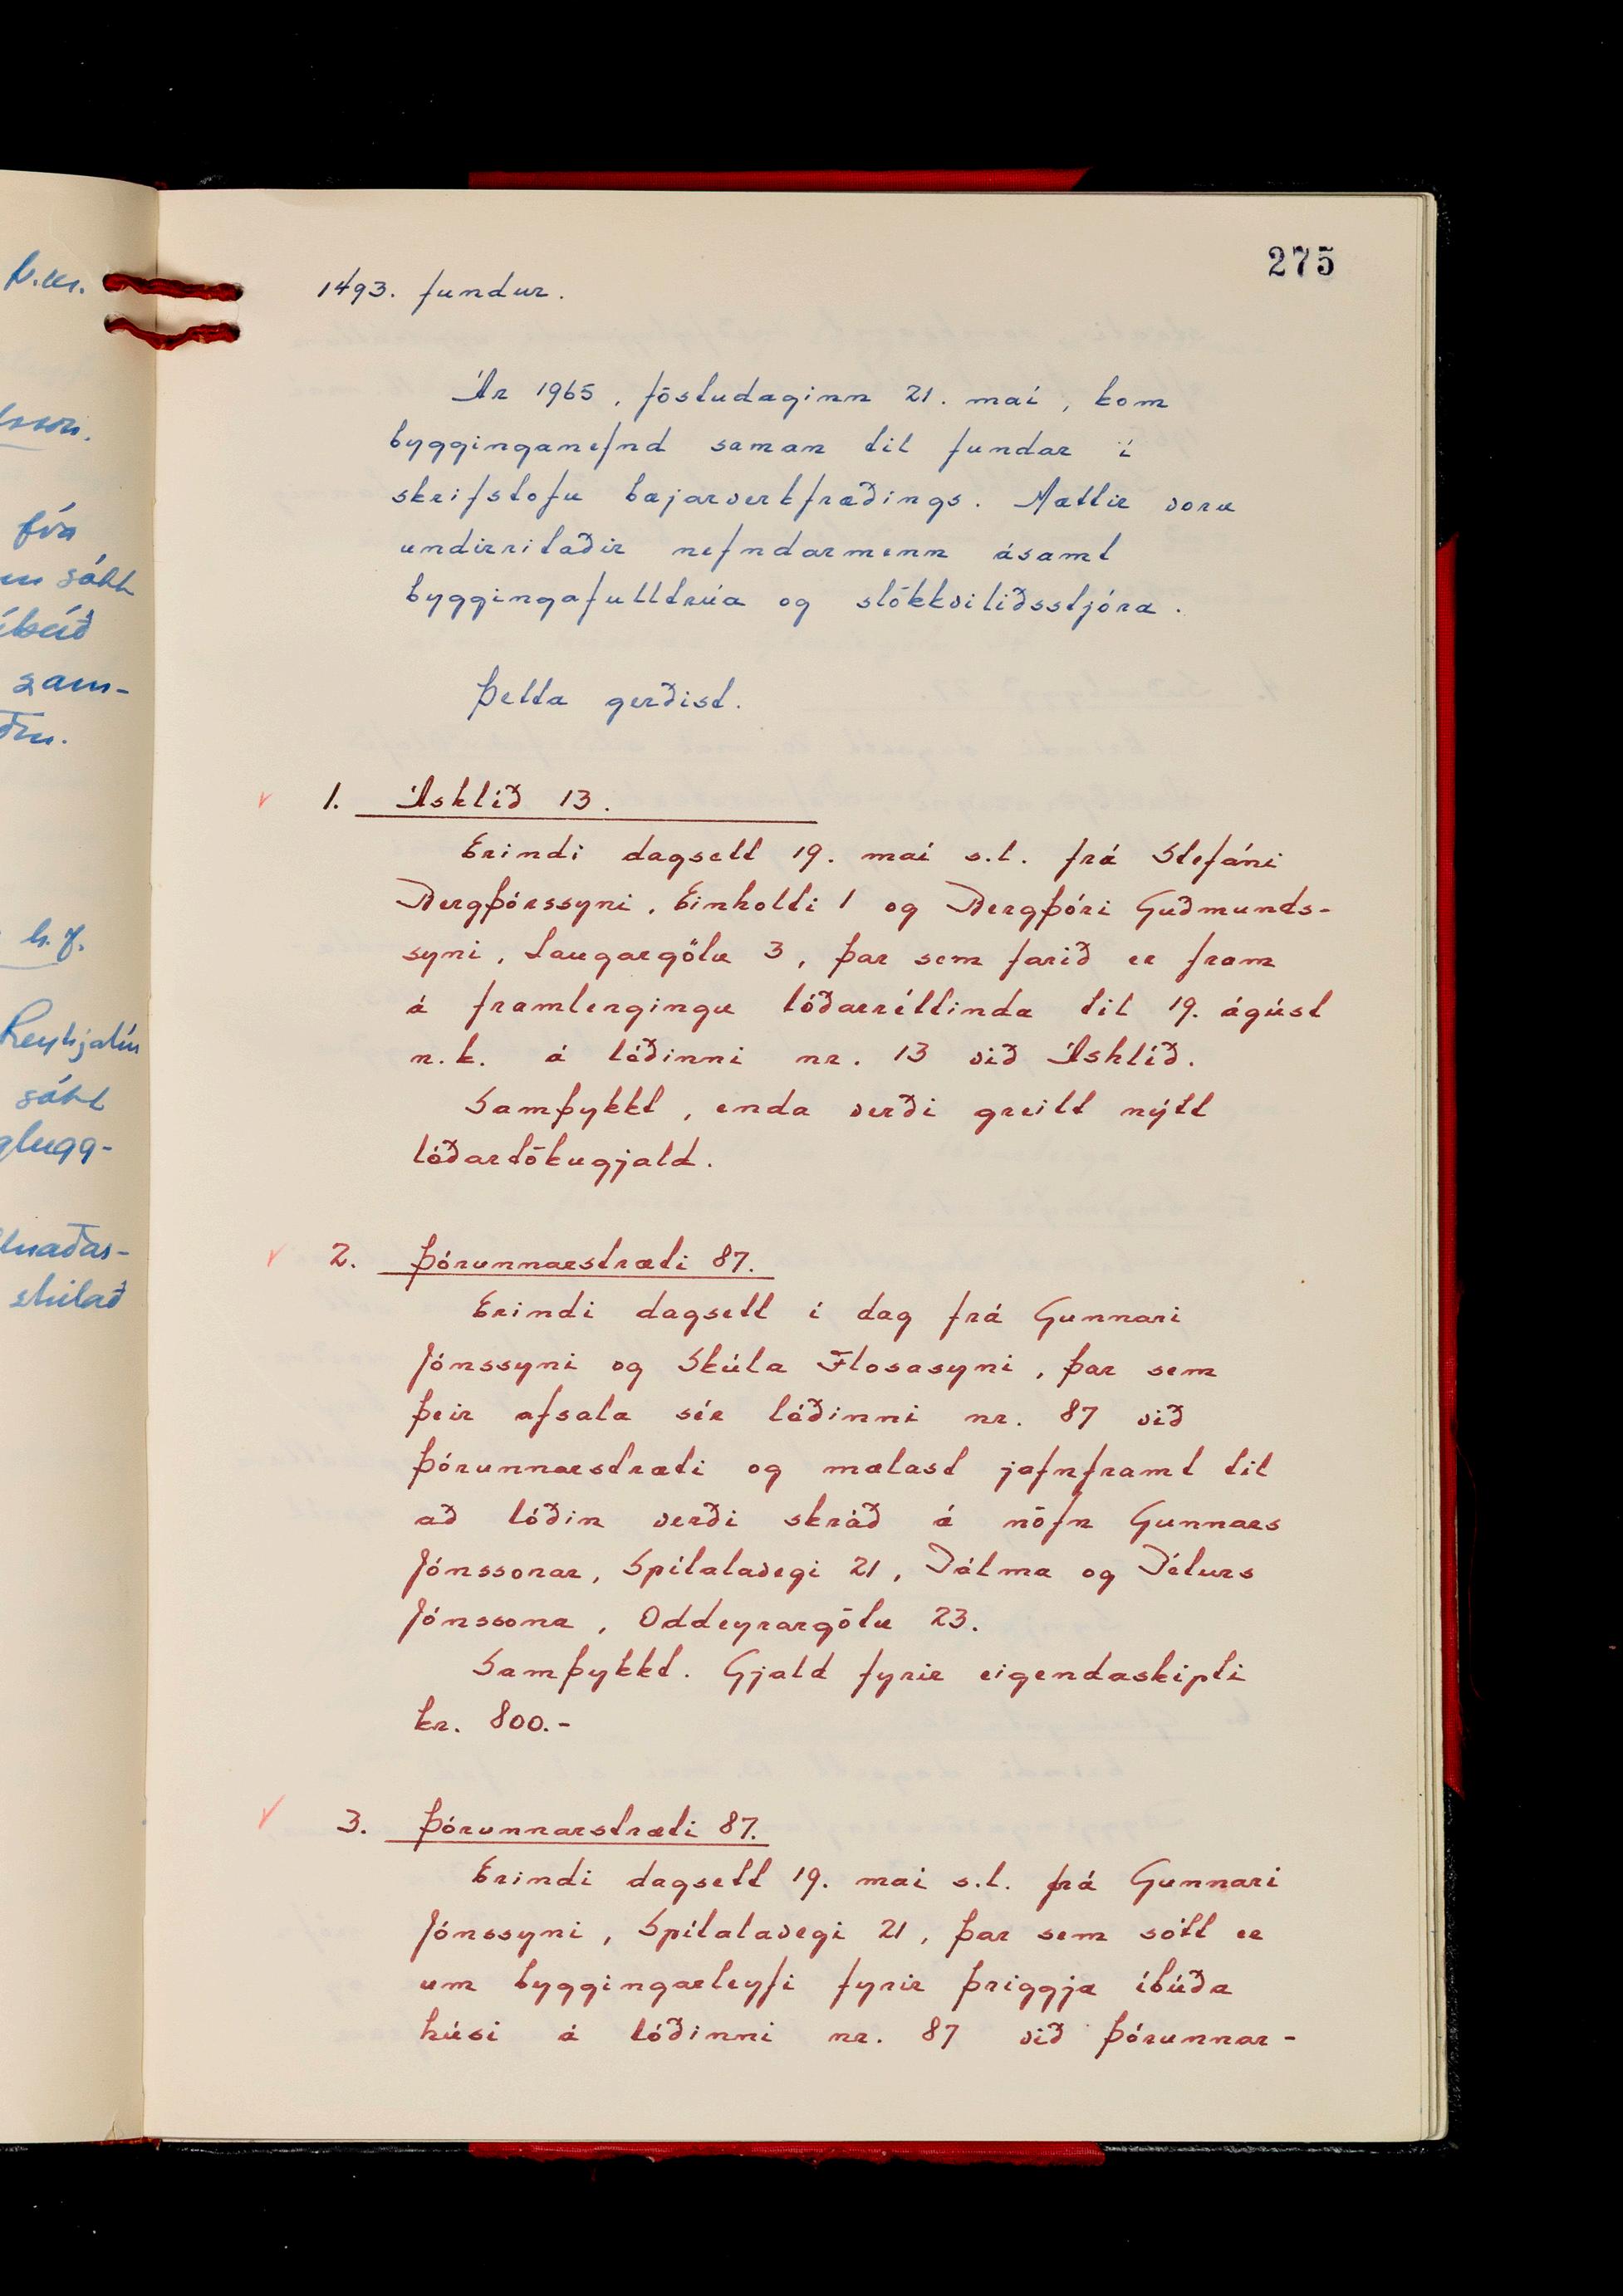 275
1493. fundur.
Ár 1965, föstudaginn 21. maí, kom
bygginganefnd saman til fundar í
skrifstofu bæjarverkfræðings. Mættir voru
undirritaðir nefndarmenn ásamt
byggingafulltrúa og slökkviliðsstjóra.
Þetta gerðist.
1. Áshlíð 13.
Erindi dagsett 19. maí s.l. frá Stefáni
Bergþórssyni, Einholti 1 og Bergþóri Guðmunds-
syni, Laugargötu 3, þar sem farið er fram
á framlengingu lóðarréttinda til 19. ágúst
n.k. á lóðinni nr. 13 við Áshlíð.
Samþykkt, enda verði greitt nýtt
lóðartökugjald.
2. Þórunnarstræti 87.
Erindi dagsett í dag frá Gunnari
Jónssyni og Skúla Flosasyni, þar sem
þeir afsala sér lóðinni nr. 87 við
Þórunnarstræti og mælast jafnframt til
að lóðin verði skráð á nöfn Gunnars
Jónssonar, Spítalavegi 21, Pálma og Péturs
Jónssona, Oddeyrargötu 23.
Samþykkt. Gjald fyrir eigendaskipti
kr. 800.-
3. Þórunnarstræti 87.
Erindi dagsett 19. maí s.l. frá Gunnari
Jónssyni, Spítalavegi 21, þar sem sótt er
um byggingarleyfi fyrir þriggja íbúða
húsi á lóðinni nr. 87 við Þórunnar-